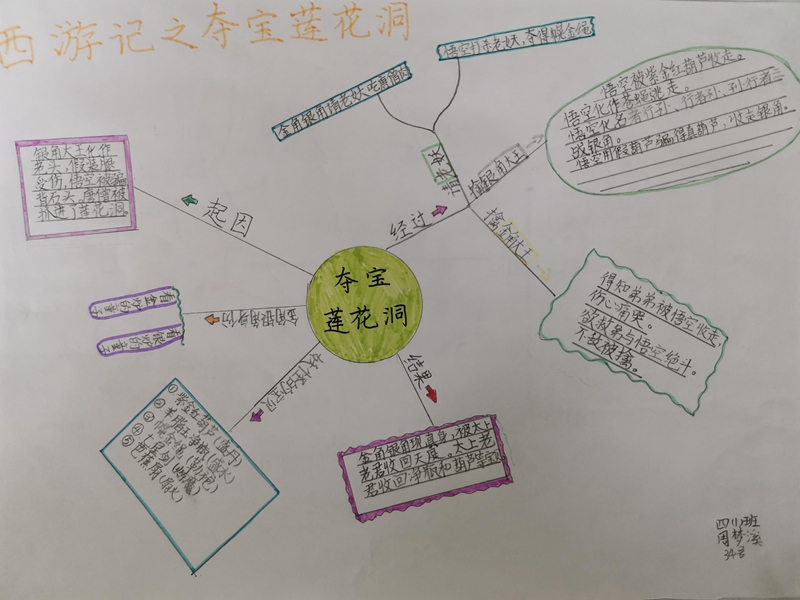 西游记之夺宝莲花洞
夺宝
莲花洞
起因
银角大王化作
老头，假装腿
受伤，悟空被骗
背石头，唐僧被
抓进了莲花洞。
经过
请老妖
金角银角请老妖吃唐僧肉
悟空打杀老妖，夺得幌金绳
擒银角大王
悟空被紫金红葫芦收走。
悟空化作苍蝇逃走。
悟空化名者行孙、行者孙、孙行者三
战银角。
悟空用假葫芦骗得真葫芦，收走银角。
擒金角大王
得知弟弟被悟空收走，
伤心痛哭。
欲救弟与悟空绝斗。
不敌被擒。
结果
金角银角现真身，被太上
老君收回天庭。太上老
君收回净瓶和葫芦等宝
妖怪宝贝
①紫金红葫芦(盛丹)
②羊脂玉净瓶(盛水)
③幌金绳(勒袍)
④七星剑(炼魔)
⑤芭蕉扇(扇火)
金角银角身份
看金炉的童子
看银炉的童子
四(1)班
周梦溪
34号